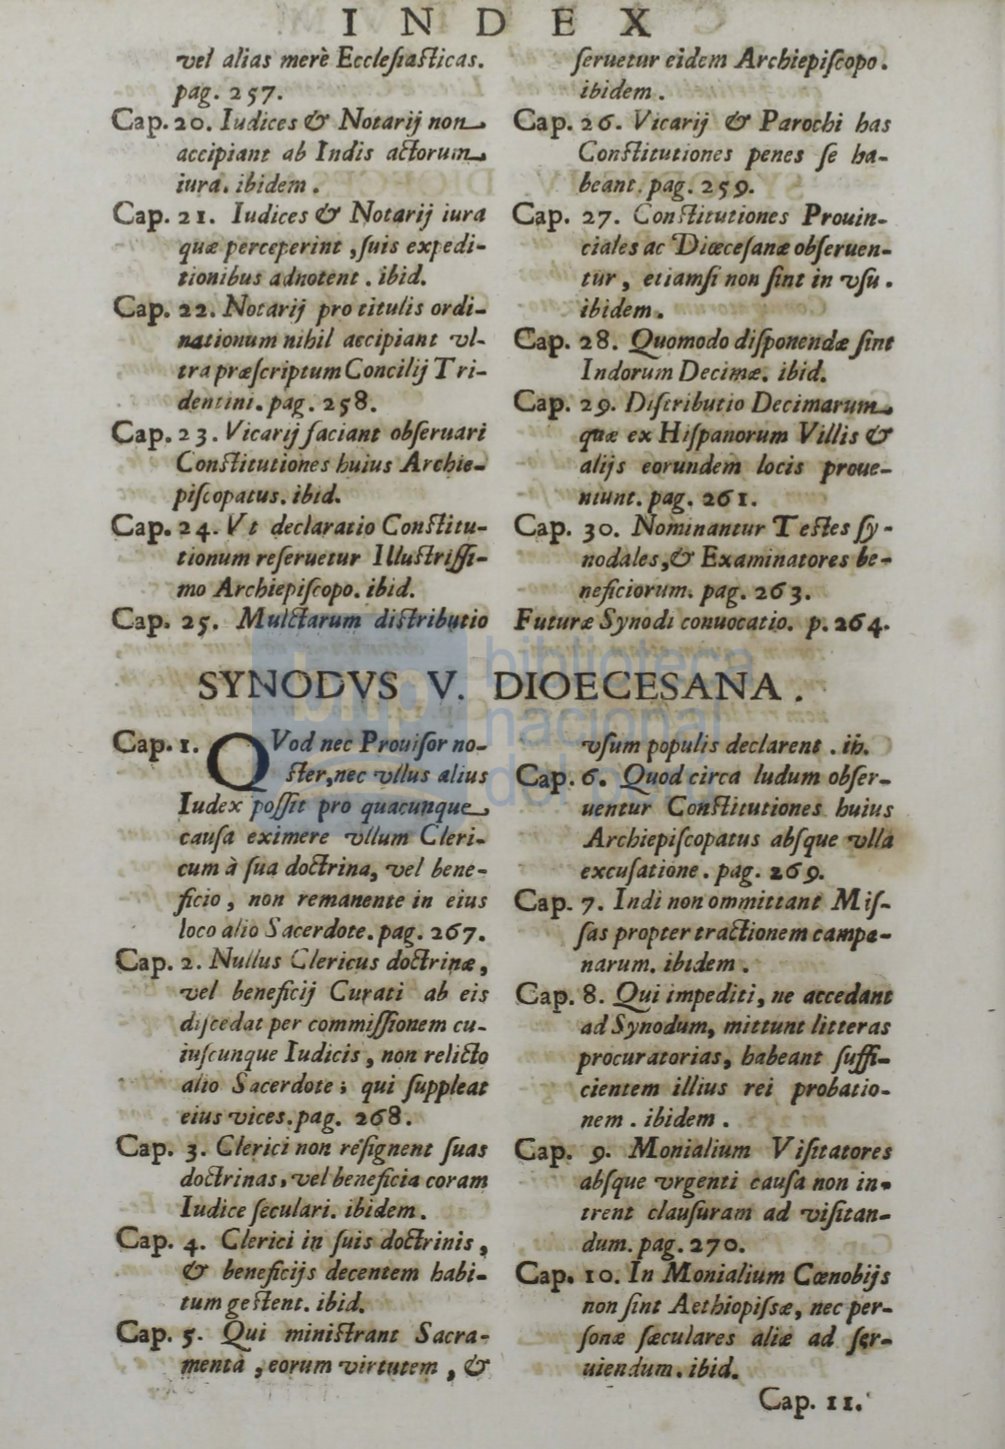 INDEX
vel alias merè Ecclesiasticas.
pag. 257.
Cap. 20. Iudices & Notarij non
accipiant ab Indis actorum
iura. ibidem.
Cap. 21. Iudices & Notarij iura
quæ perceperint, suis expedi-
tionibus adnotent. ibid.
Cap. 22. Notarij pro titulis ordi-
nationum nihil accipiant vl-
tra præscriptum Concilij Tri-
dentini. pag. 258.
Cap. 23. Vicarij faciant obseruari
Constitutiones huius Archie-
piscopatus. ibid.
Cap. 24. Vt declaratio Constitu-
tionum reseruetur Illustrissi-
mo Archiepiscopo. ibid.
Cap. 25. Mulctarum distributio
seruetur eidem Archiepiscopo.
ibidem.
Cap. 26. Vicarij & Parochi has
Constitutiones penes se ha-
beant. pag. 259.
Cap. 27. Constitutiones Prouin-
ciales ac Diœcesanæ obseruen-
tur, etiamsi non sint in vsu.
ibidem.
Cap. 28. Quomodo disponendæ sint
Indorum Decimæ. ibid.
Cap. 29. Distributio Decimarum
quæ ex Hispanorum Villis &
alijs eorundem locis proue-
niunt. pag. 261.
Cap. 30. Nominantur Testes sy-
nodales, & Examinatores be-
neficiorum. pag. 263.
Futuræ Synodi conuocatio. p. 264.
SYNODVS V. DIOECESANA.
Cap. 1. QVod nec Prouisor no-
ster, nec vllus alius
Iudex possit pro quacunque
causa eximere vllum Cleri-
cum à sua doctrina, vel bene-
ficio, non remanente in eius
loco alio Sacerdote. pag. 267.
Cap. 2. Nullus Clericus doctrinæ,
vel beneficij Curati ab eis
discedat per commissionem cu-
iuscunque Iudicis, non relicto
alio Sacerdote; qui suppleat
eius vices. pag. 268.
Cap. 3. Clerici non resignent suas
doctrinas, vel beneficia coram
Iudice seculari. ibidem.
Cap. 4. Clerici in suis doctrinis,
& beneficijs decentem habi-
tum gestent. ibid.
Cap. 5. Qui ministrant Sacra-
menta, eorum virtutem, &
vsum populis declarent. ib.
Cap. 6. Quod circa ludum obser-
uentur Constitutiones huius
Archiepiscopatus absque vlla
excusatione. pag. 269.
Cap. 7. Indi non ommittant Mis-
sas propter tractionem campa-
narum. ibidem.
Cap. 8. Qui impediti, ne accedant
ad Synodum, mittunt litteras
procuratorias, habeant suffi-
cientem illius rei probatio-
nem. ibidem.
Cap. 9. Monialium Visitatores
absque vrgenti causa non in-
trent clausuram ad visitan-
dum. pag. 270.
Cap. 10. In Monialium Cœnobijs
non sint Aethiopissæ, nec per-
sonæ sæculares aliæ ad ser-
uiendum. ibid.
Cap. 11.
biblioteca
nacional
del perú